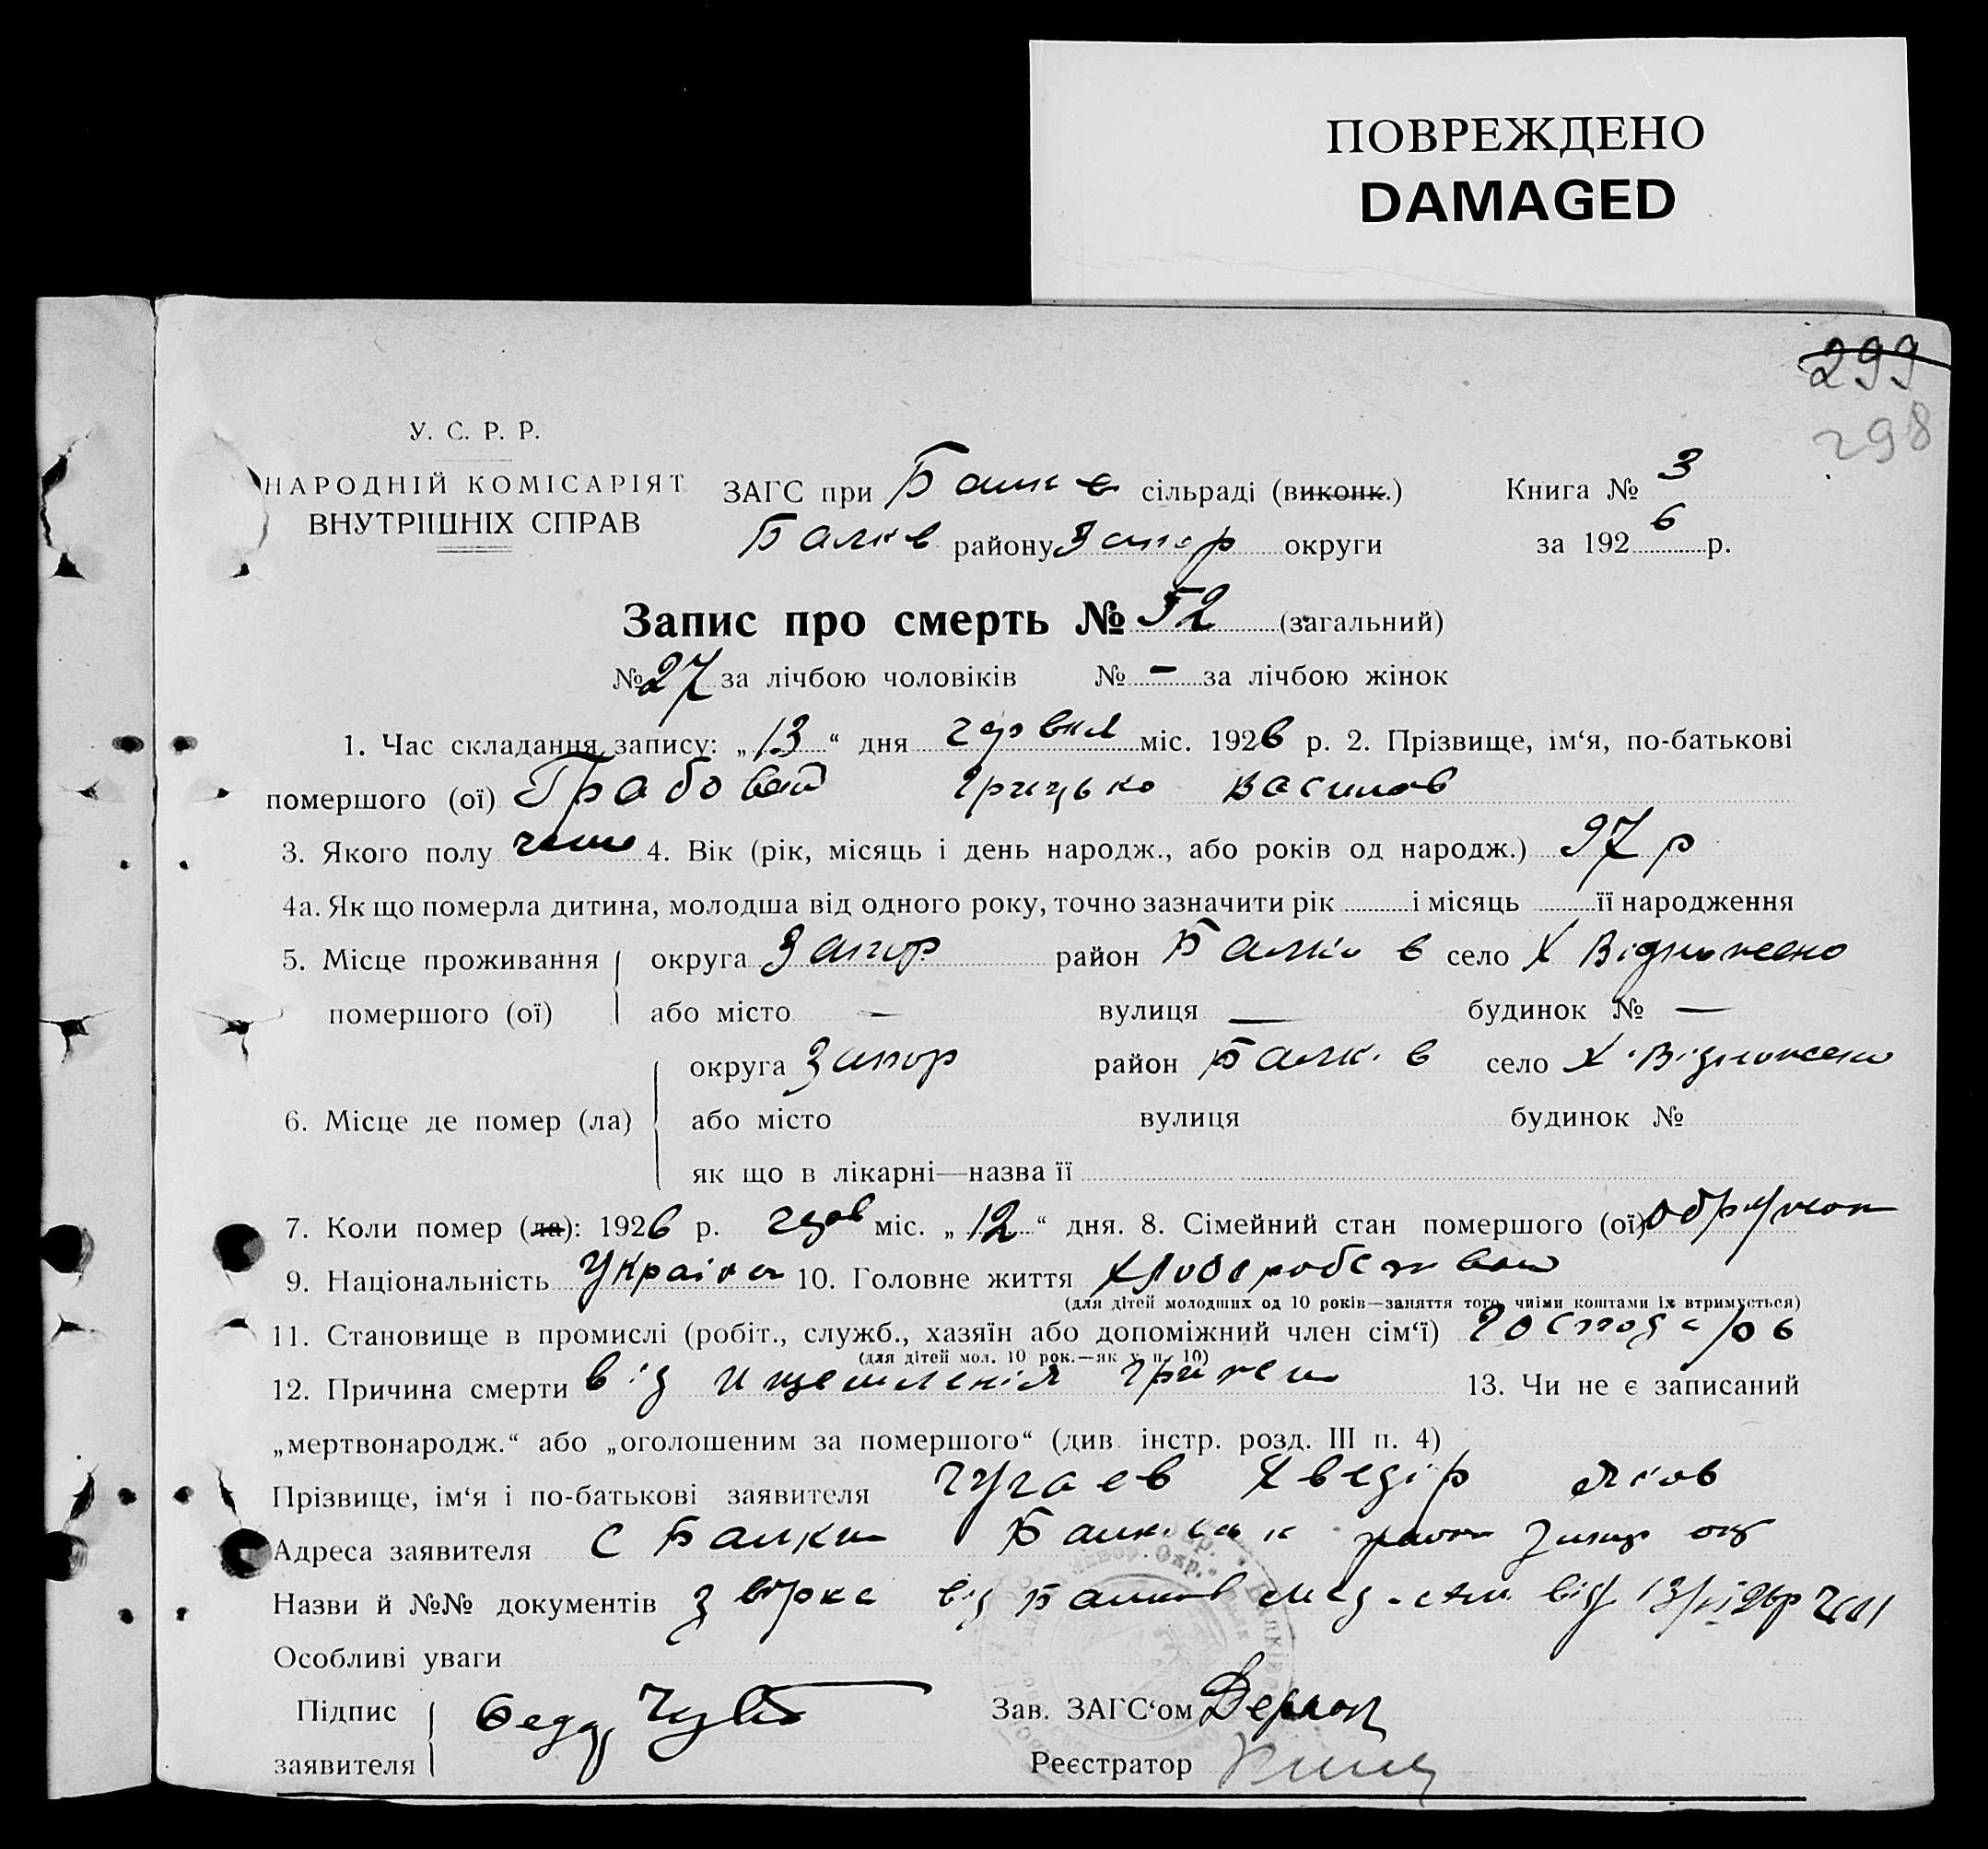 ПОВРЕЖДЕНО
DAMAGED
299
298
У. С. Р. Р.
НАРОДНІЙ КОМІСАРІЯТ
ВНУТРІШНІХ СПРАВ
ЗАГС при Балків сільраді (виконк.)
Балків району Запор округи
Книга № 3
за 1926 р.
Запис про смерть № 52 (загальний)
№ 27 за лічбою чоловіків № — за лічбою жінок
1. Час складання запису: „13“ дня червня міс. 1926 р. 2. Прізвище, ім‘я, по-батькові
помершого (ої) Грабовий Грицько Васильов
3. Якого полу чолов 4. Вік (рік, місяць і день народж., або років од народж.) 97 р
4а. Як що померла дитина, молодша від одного року, точно зазначити рік і місяць її народження
5. Місце проживання помершого (ої) округа Запор район Балків село Х
або місто — вулиця — будинок № —
6. Місце де помер (ла) округа Запор район Балк.в село Х
або місто вулиця будинок №
як що в лікарні—назва її
7. Коли помер (ла): 1926 р. черв міс. „12“ дня. 8. Сімейний стан помершого (ої)
9. Національність Україн 10. Головне життя
(для дітей молодших од 10 років—заняття того, чиїми коштами їх втримується)
11. Становище в промислі (робіт., служб., хазяїн або допоміжний член сім‘ї) господарь
(для дітей мол. 10 рок.—як у п. 10)
12. Причина смерти від ищемленія грижи 13. Чи не є записаний
„мертвонародж.“ або „оголошеним за помершого“ (див. інстр. розд. III п. 4)
Прізвище, ім‘я і по-батькові заявителя Чугаев Хведір
Адреса заявителя с Балки район Запор окр
Назви й №№ документів від Балків 13/VI 26р
Особливі уваги
Підпис
заявителя
Зав. ЗАГС‘ом
Реєстратор